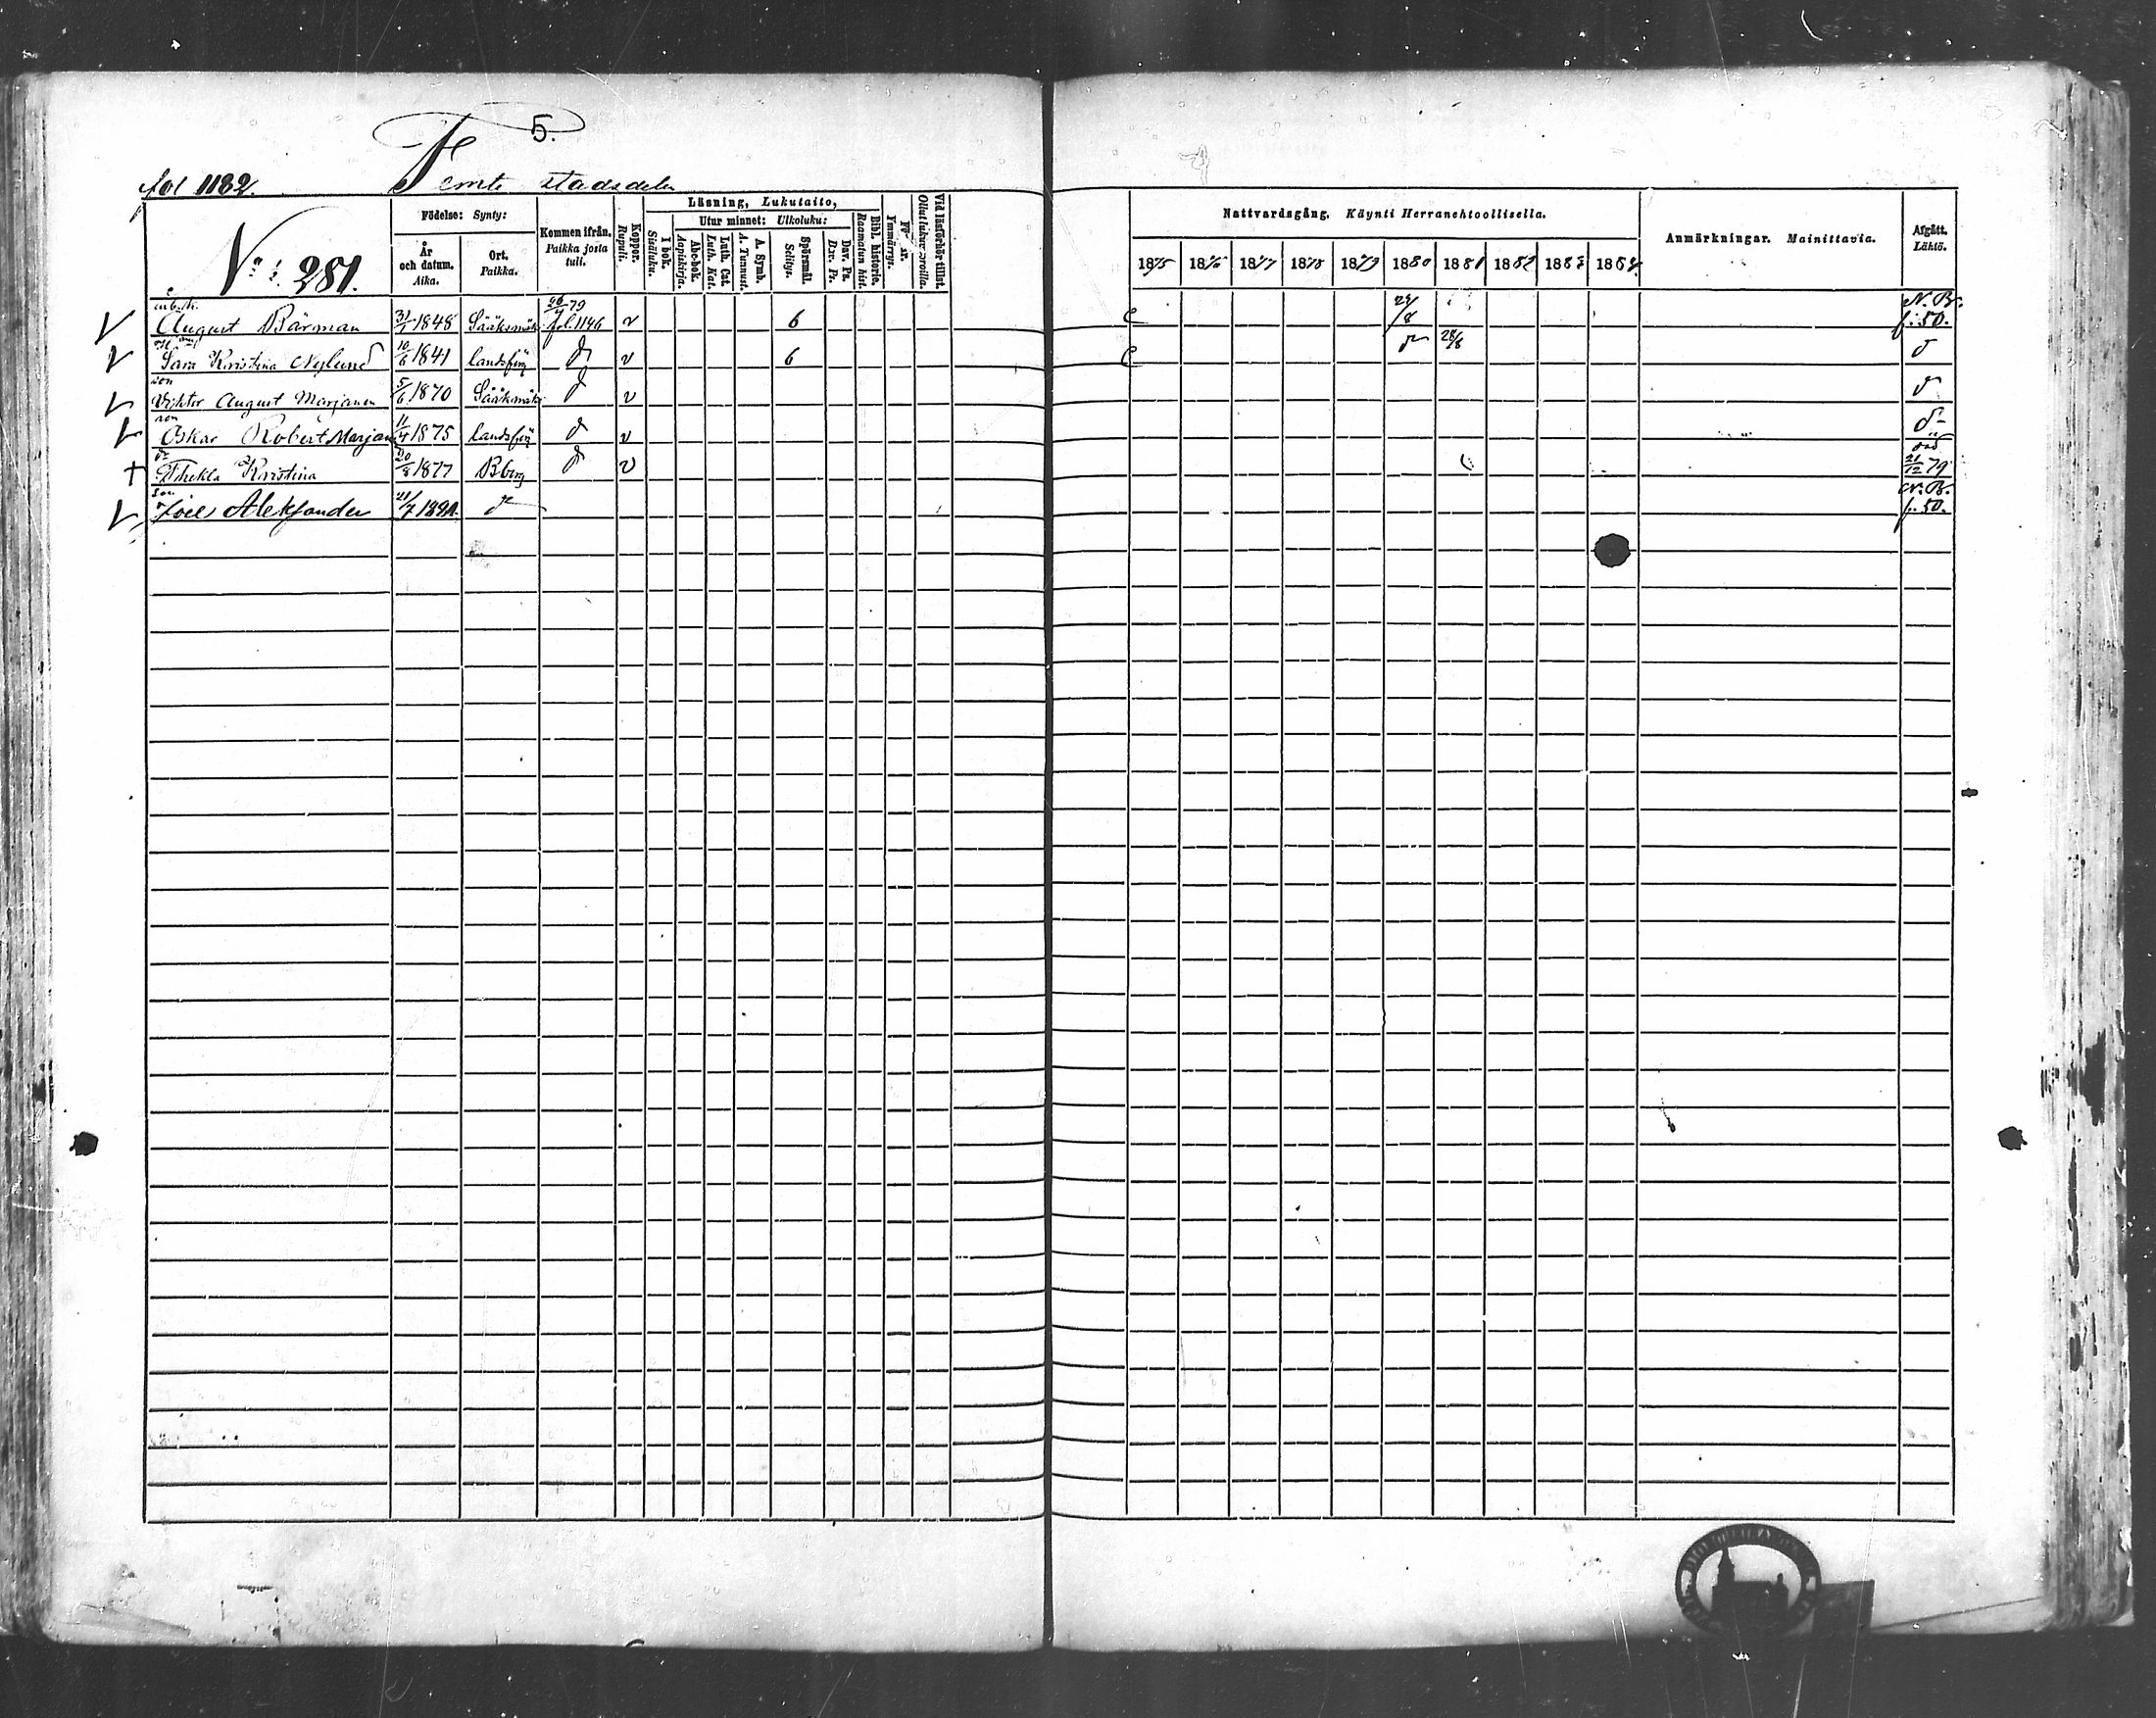 5.
fol 1182.
Femte stadsdelen
No 281.
Födelse: Synty:
År och datum. Aika.
Ort. Paikka.
Kommen ifrån. Paikka josta tuli.
Koppor. Rupuli.
Läsning, Lukutaito,
I bok. Sisäluku.
Utur minnet: Ulkoluku:
Abc-bok. Aapiskirja.
Luth. Cat. Luth. Kat.
A. Symb. A. Tunnust.
Spörsmål. Selitys.
Dav. Ps. Dav. Ps.
Bibl. historie. Raamatun hist.
Ymmärrys.
Vid läsförhör tillst.
Nattvardsgång. Käynti Herranehtoollisella.
1875 1876 1877 1878 1879 1880 1881 1882 1883 1884
Anmärkningar. Mainittavia.
Afgått. Lähtö.
August Bärman 31/1 1848 Sääksmäki 79 fol. 1146 v 6 24/8 N. B. f. 50.
Sara Kristina Nylund 10/6 1841 landsförs d v 6 d 28/8 d
son
Viktor August Marjanen 5/6 1870 Sääksmäki d v d
son
Oskar Robert Marjanen 11/4 1875 landsförs d v d
Thekla Kristina 20/8 1877 Bborg d v död 21/12 79
son
Aleksander 21/7 d N. B. f. 50.